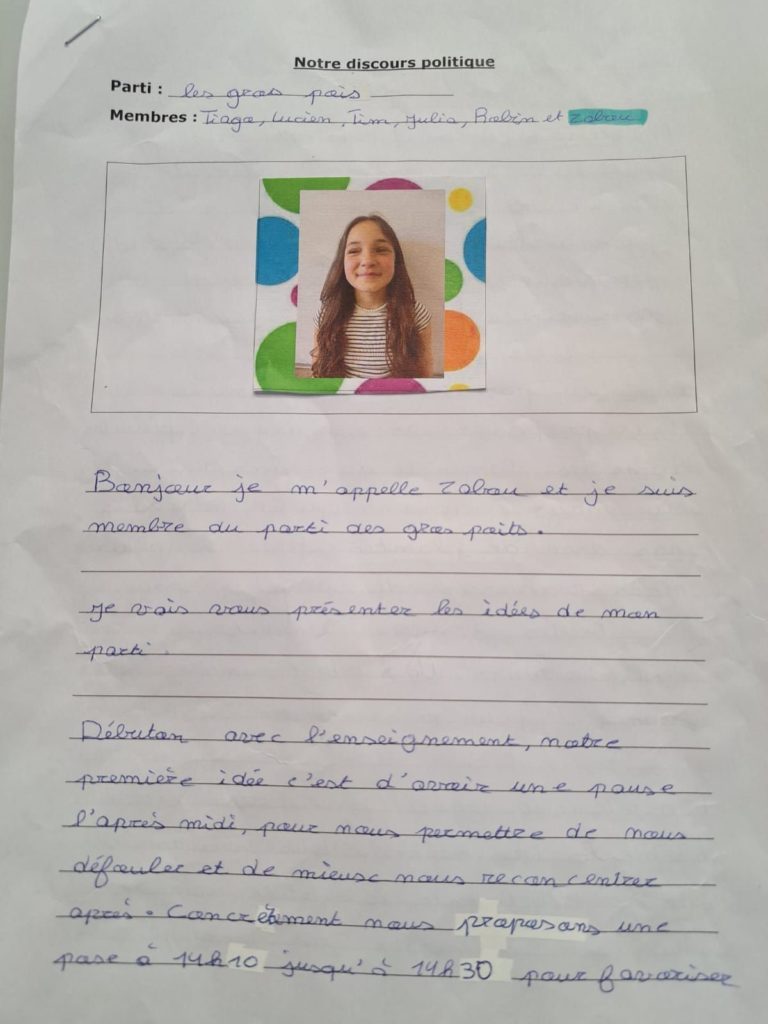 Notre discours politique
Parti : les gros pois
Membres : Tiago, Lucien, Tim, Julia, Robin et Zabou
Bonjour je m'appelle Zabou et je suis
membre du parti des gros poits.
Je vais vous présenter les idées de mon
parti.
Débuton avec l'enseignement, notre
première idée c'est d'avoir une pause
l'après midi, pour nous permettre de nous
défouler et de mieux nous reconcentrer
après. Concrètement nous proposons une
pase à 14h10 jusqu'à 14h30 pour favoriser